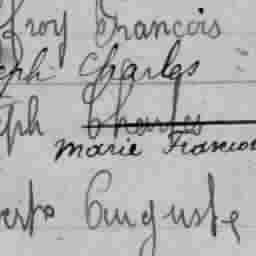 ffroy François
eph Charles
eph Charles
Marie Francoi
erto Auguste